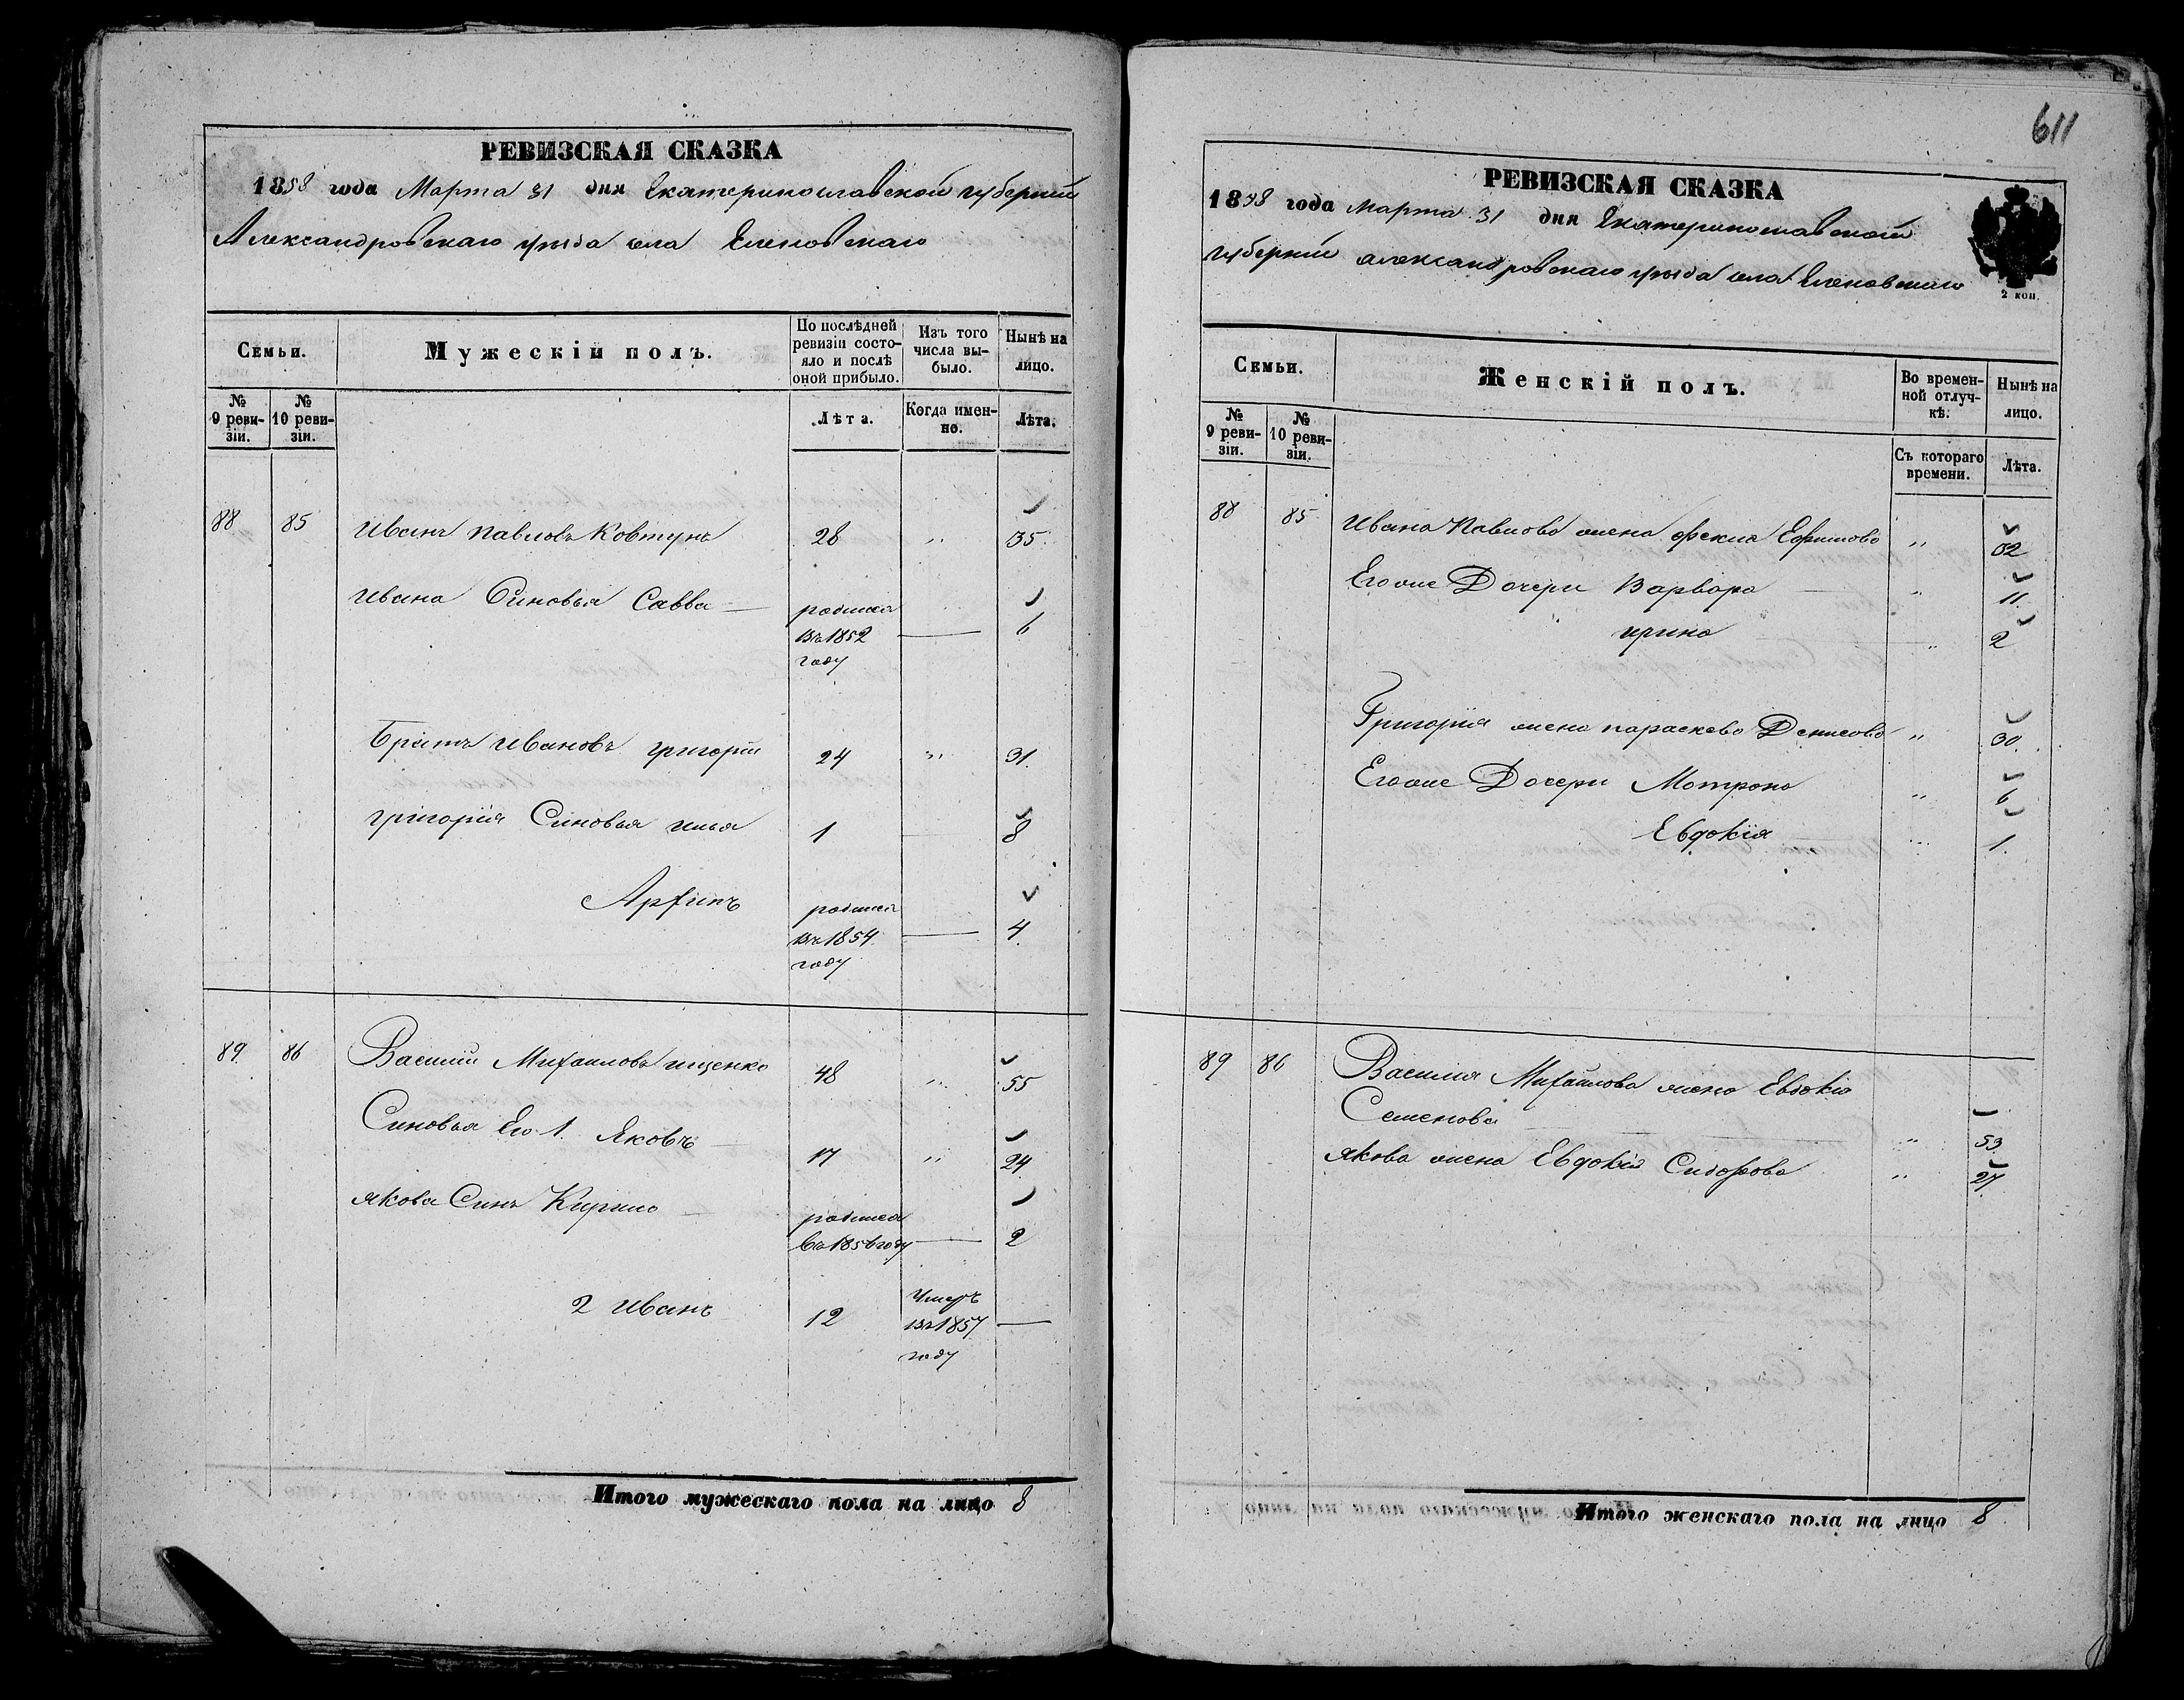 611
РЕВИЗСКАЯ СКАЗКА
1858 года Марта 31 дня Екатеринославской губернии
Александровскаго уезда села Еленовскаго
Семьи.
Мужескій полъ.
По послѣдней ревизіи состо-
яло и послѣ оной прибыло.
Изъ того числа вы-
было.
Нынѣ на лицо.
№ 9 реви-
зіи.
№ 10 реви-
зіи.
Лѣта.
Когда имен-
но.
Лѣта.
88 85 Иванъ Павловъ Ковтунъ 28 " 35
Ивана Синовья Савва — родился
въ 1852 — 6
году
Братъ Ивановъ григорій 24 " 31
григорія Синовья илья 1 8
Архипъ родился
въ 1854 — 4
году
89 86 Василій Михаиловъ ищенко 48 " 55
Синовья Его 1. Яковъ 17 " 24
якова Синъ Кирило родился
въ 1856 году — 2
2 Иванъ 12 Умеръ
въ 1857 —
году
Итого мужескаго пола на лицо 8
РЕВИЗСКАЯ СКАЗКА
1858 года Марта 31 дня Екатеринославской
губерніи александровскаго уезда села Еленовскаго
2 коп.
Семьи.
Женскій полъ.
Во времен-
ной отлуч-
кѣ.
Нынѣ на лицо.
№ 9 реви-
зіи.
№ 10 реви-
зіи.
Съ котораго
времени.
Лѣта.
88 85 Ивана Павлова жена фекла Ефимова " 32
Егоже Дочери Варвара " 11
ирина " 2
Григорія жена параскева Денисова " 30
Егоже Дочери Мотрона " 6
Евдокія " 1
89 86 Василия Михайлова жена Евдокія
Семенова " 53
якова жена Евдокія Сидорова " 27
Итого женскаго пола на лицо 8